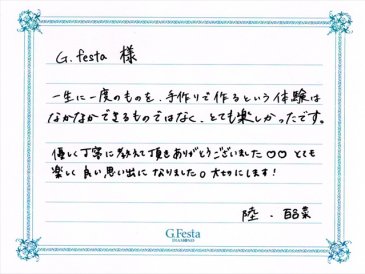 G.festa 様
一生に一度のものを、手作りで作るという体験は
なかなかできるものではなく、とても楽しかったです。
優しく丁寧に教えて頂きありがとうございました○○ とても
楽しく良い思い出になりました○ 大切にします!
陸・
G.Festa
DIAMOND